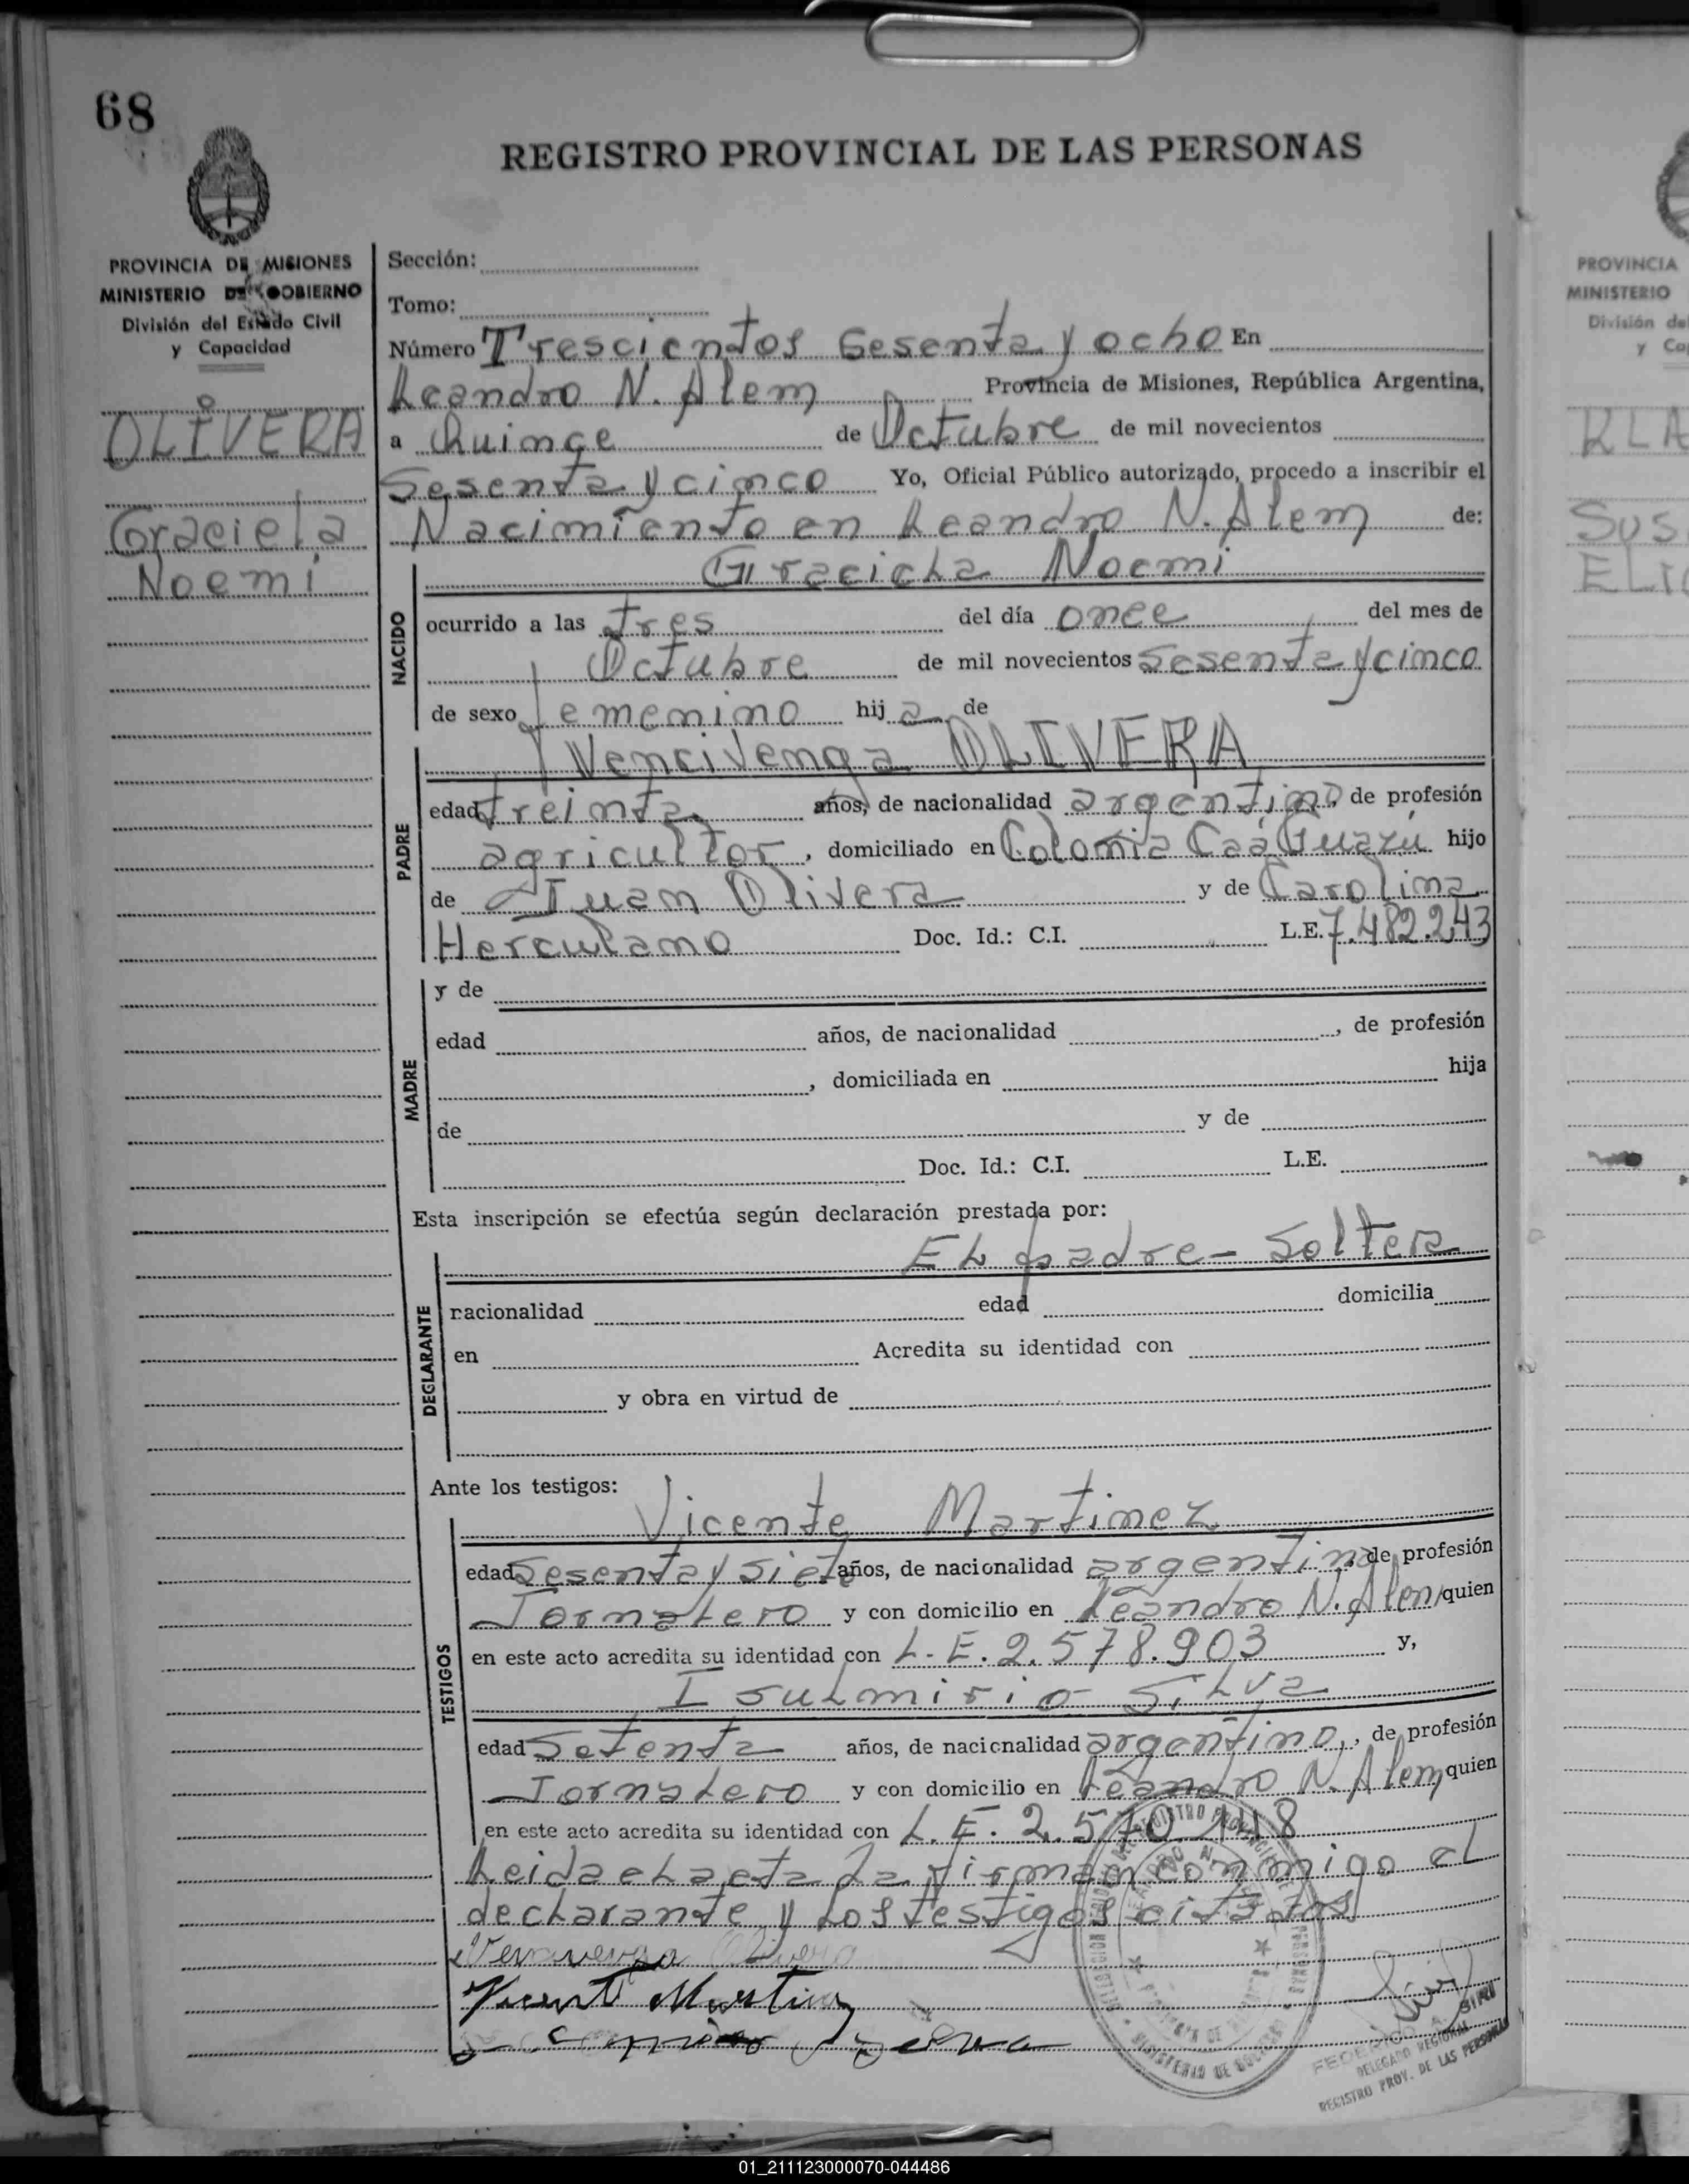 68
REGISTRO PROVINCIAL DE LAS PERSONAS
PROVINCIA DE MISIONES
MINISTERIO DE GOBIERNO
División del Estado Civil
y Capacidad
OLIVERA
Graciela
Noemi
Sección:
Tomo:
Número Trescientos Sesenta y ocho En
Leandro N. Alem Provincia de Misiones, República Argentina,
a Quince de Octubre de mil novecientos
Sesenta y cinco Yo, Oficial Público autorizado, procedo a inscribir el
Nacimiento en Leandro N. Alem de:
Graciela Noemi
NACIDO
ocurrido a las tres del día once del mes de
Octubre de mil novecientos Sesenta y cinco
de sexo femenino hija de
Vencivenga OLIVERA
PADRE
edad treinta años, de nacionalidad argentino, de profesión
agricultor, domiciliado en Colonia Caá Guazú hijo
de Juan Olivera y de Carolina
Herculano Doc. Id.: C.I. L.E. 7.482.243
MADRE
y de
edad años, de nacionalidad , de profesión
, domiciliada en hija
de y de
Doc. Id.: C.I. L.E.
Esta inscripción se efectúa según declaración prestada por:
El padre - Soltera
DECLARANTE
nacionalidad edad domicilia
en Acredita su identidad con
y obra en virtud de
Ante los testigos:
Vicente Martinez
TESTIGOS
edad Sesenta y siete años, de nacionalidad argentino, de profesión
Jornalero y con domicilio en Leandro N. Alem quien
en este acto acredita su identidad con L.E. 2.578.903 y,
Isulmirio Silva
edad Setenta años, de nacionalidad argentino, de profesión
Jornalero y con domicilio en Leandro N. Alem quien
en este acto acredita su identidad con L.E. 2.570.118
Leida el acta la firman conmigo el
declarante y los testigos citados
Vencivenga Olivera
Vicente Martinez
FEDERICO
DELEGADO REGIONAL
REGISTRO PROV. DE LAS PERSONAS
PROVINCIA
MINISTERIO
División del
y Ca
KLA
SUS
ELI
01_211123000070-044486